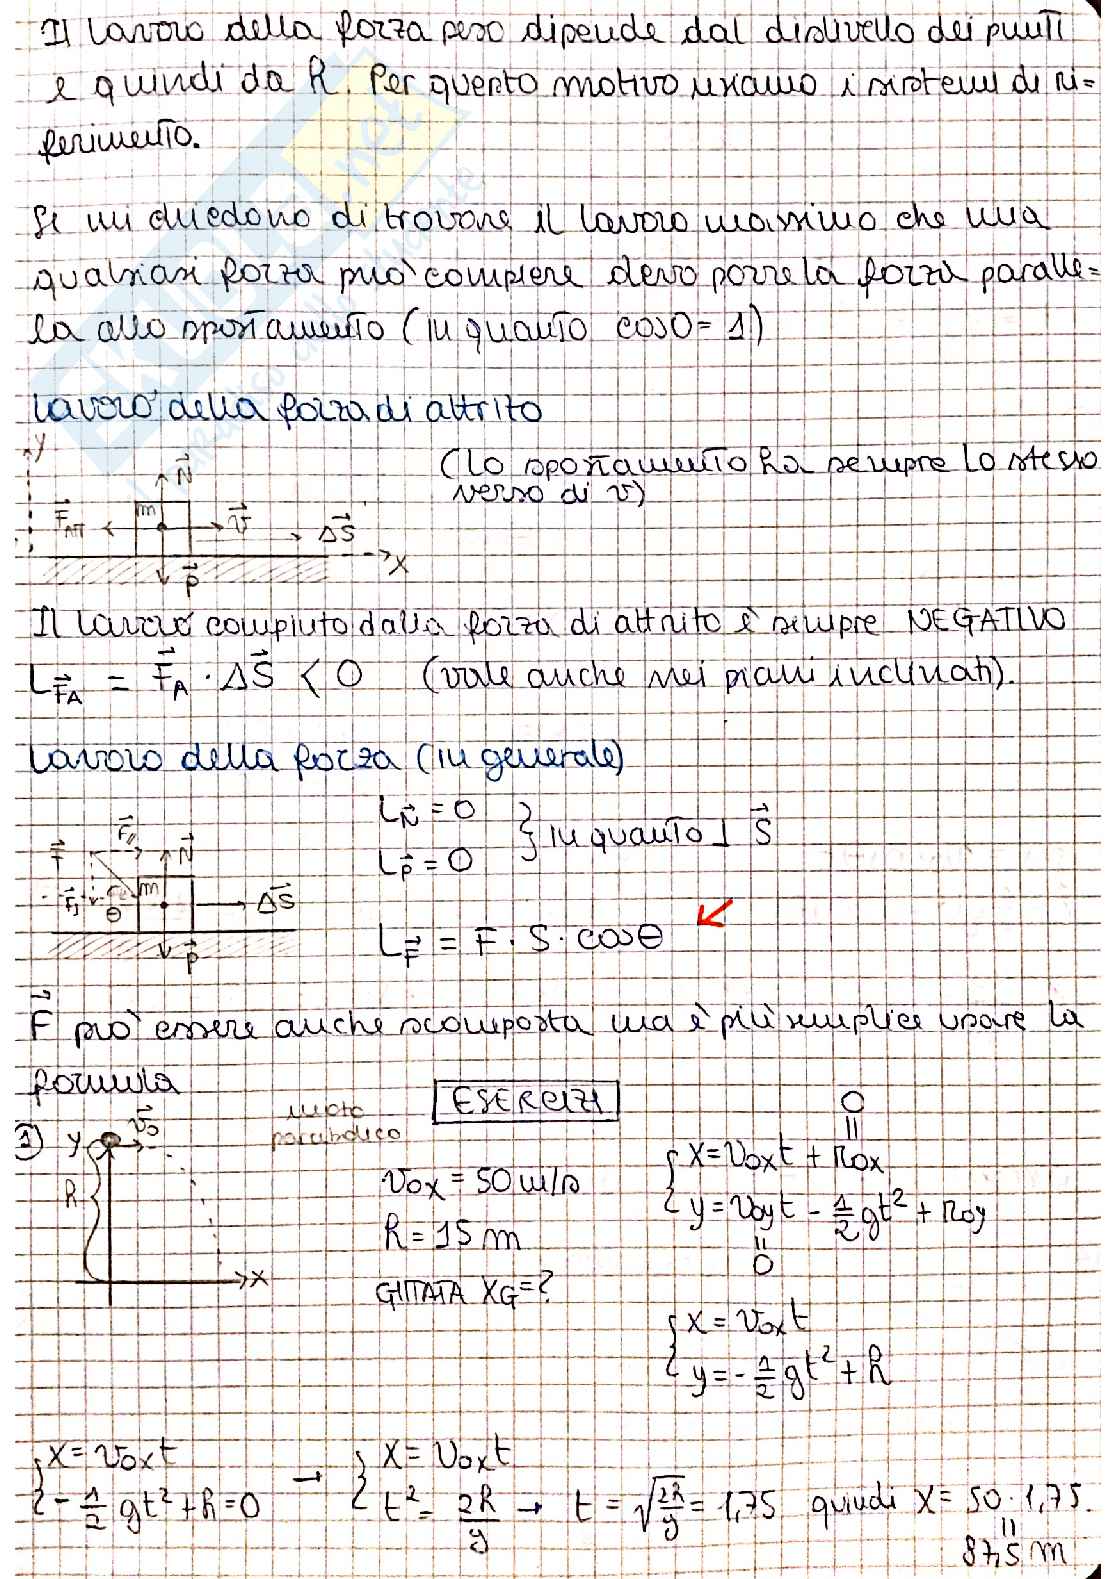 Il lavoro della forza peso dipende dal dislivello dei punti
e quindi da h. Per questo motivo usiamo i sistemi di ri=
ferimento.
Se mi chiedono di trovare il lavoro massimo che una
qualsiasi forza può compiere devo porre la forza paralle=
la allo spostamento (in quanto cos0=1)
Lavoro della forza di attrito
(lo spostamento ha sempre lo stesso
verso di v)
y
N
m
F ATT
v
ΔS
x
P
Il lavoro compiuto dalla forza di attrito è sempre NEGATIVO
L FA = FA · ΔS < 0 (vale anche nei piani inclinati).
Lavoro della forza (in generale)
L N = 0
L P = 0
} in quanto ⊥ S
F// 
F
N
m
θ
ΔS
P
L F = F · S · cosθ
F può essere anche scomposta ma è più semplice usare la
formula
ESERCIZI
1)
y
v0
h
x
moto
parabolico
v0x = 50 m/s
h = 15 m
GITTATA XG=?
0
=
{ x = v0x t + r0x
y = v0y t - 1/2 gt² + r0y
=
0
{ x = v0x t
y = - 1/2 gt² + h
{ x = v0x t
- 1/2 gt² + h = 0
→ { x = v0x t
t² = 2h/g → t = √2h/g = 1,75 quindi x = 50 · 1,75.
=
87,5 m